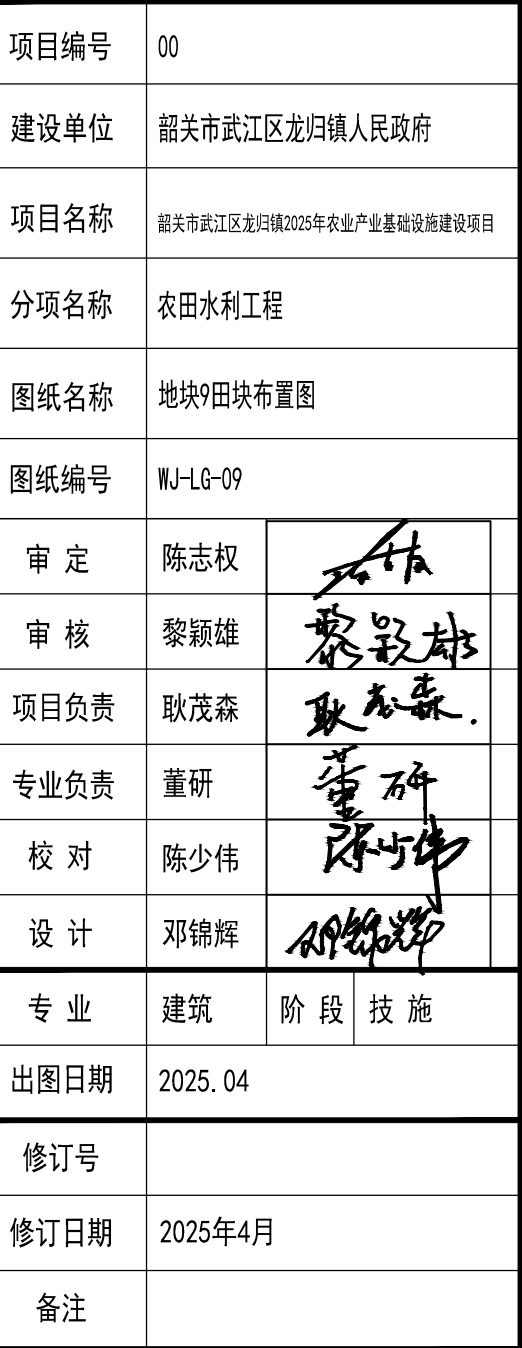 项目编号 00
建设单位 韶关市武江区龙归镇人民政府
项目名称 韶关市武江区龙归镇2025年农业产业基础设施建设项目
分项名称 农田水利工程
图纸名称 地块9田块布置图
图纸编号 WJ-LG-09
审 定 陈志权
审 核 黎颖雄 黎颖雄
项目负责 耿茂森 耿茂森.
专业负责 董研 董研
校 对 陈少伟 陈少伟
设 计 邓锦辉 邓锦辉
专 业 建筑 阶 段 技 施
出图日期 2025.04
修订号
修订日期 2025年4月
备注